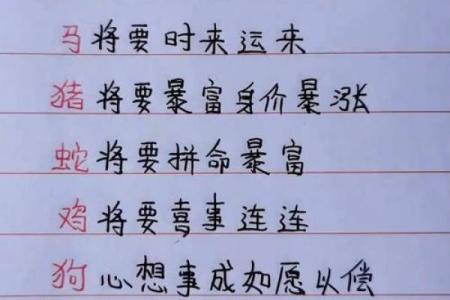 马将要时来运来
猪将要暴富身价暴涨
蛇将要拼命暴富
鸡将要喜事连连
狗心想事成如愿以偿